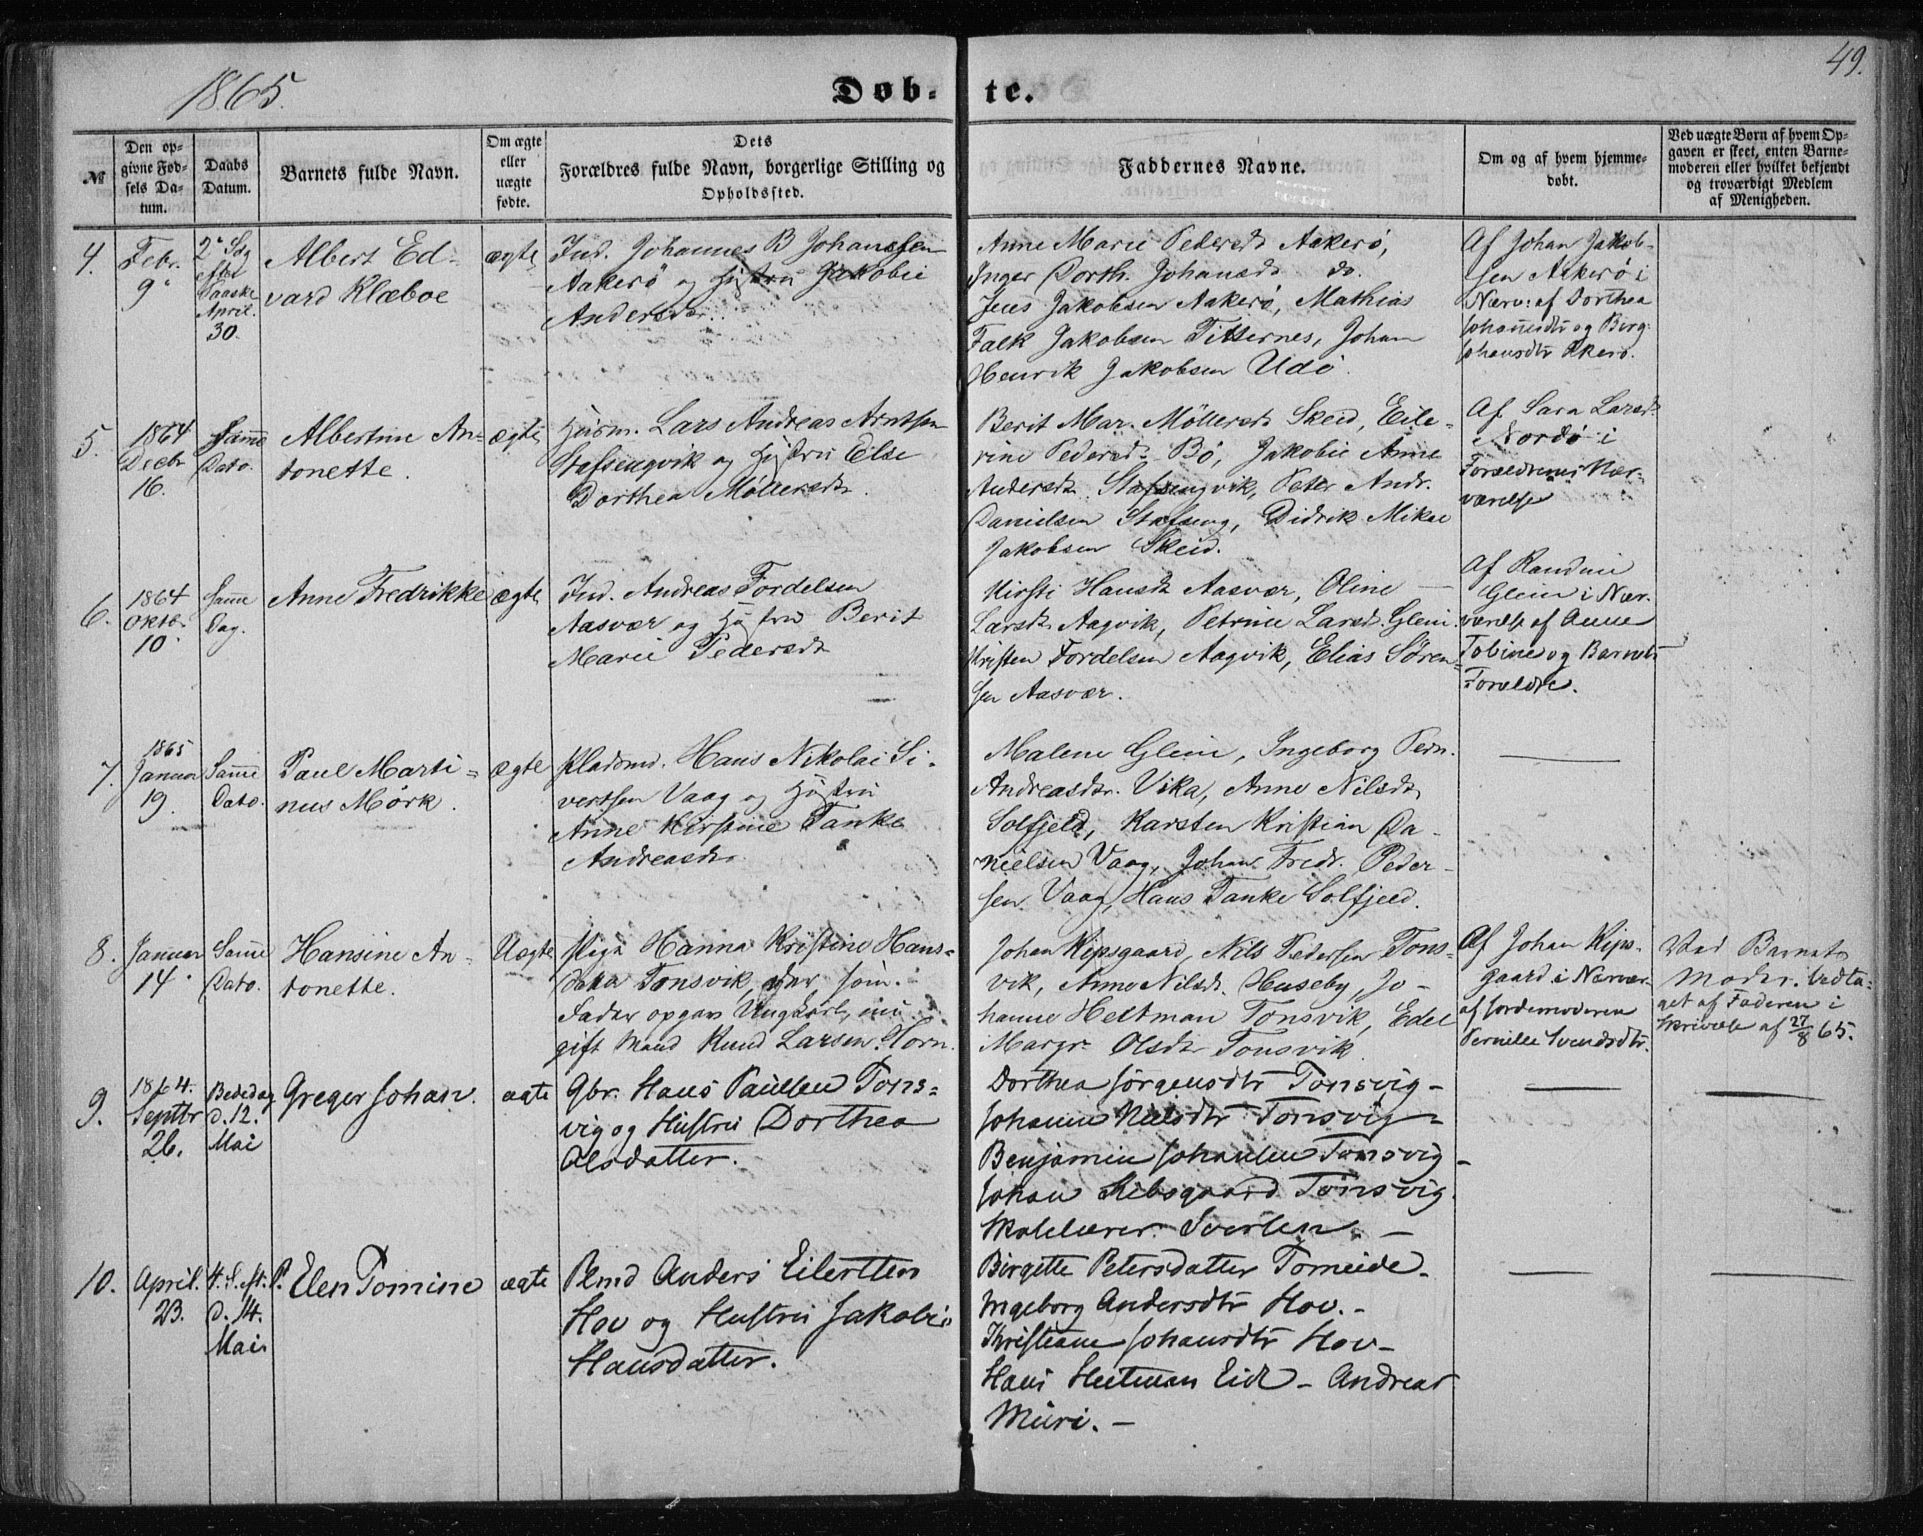 1865.
Døb-
te.
49.
№
Den op-
givne Fød-
sels Da-
tum.
Daabs
Datum.
Barnets fulde Navn.
Om ægte
eller
uægte
fødte.
Dets
Forældres fulde Navn, borgerlige Stilling og
Opholdssted.
Faddernes Navne.
Om og af hvem hjemme-
døbt.
Ved uægte Børn af hvem Op-
gaven er skeet, enten Barne-
moderen eller hvilket bekjendt
og troværdigt Medlem
af Menigheden.
4.
Febr.
9
2 Sdg
eftr
Paaske
April.
30.
Albert Ed-
vard Klæboe
ægte
Ind. Johannes B Johanssen
Aakerø og Hustru Jakobie
Andersdr.
Anne Marie Pedersdr Aakerø,
Inger Dorth. Johansdr do.
Jens Jakobsen Aakerø, Mathias
Falk Jakobsen Titternes, Johan
Henrik Jakobsen Udø.
Af Johan Jakob-
sen Aakerø i
Nærv: af Dorthea
Johansdtr og Berg.
Johansdtr Akerø.
5.
1864
Decbr
16.
Samme
Dato.
Albertine An-
tonette.
ægte
Husm. Lars Andreas Arntsen
Stafsengvik og Hustru Else
Dorthea Møllersdr.
Berit Mar. Møllersd. Skeid, Eile-
rine Pedersd. Bø, Jakobie Anne
Andersdr. Stafsengvik, Peter Andr.
Danielsen Stafseng, Didrik Mikal
Jakobsen Skeid.
Af Sara Larsdr.
Nordø i
Forældrenes Nær-
værelse
6.
1864
Oktbr.
10
Samme
Dag.
Anne Fredrikke
ægte
Ind. Andreas Fordelsen
Aasvær og Hustru Berit
Marie Pedersdr
Kirsti Hansdr Aasvær, Oline
Larsdr Aagvik, Petrine Larsd. Glein
Kristen Fordelsen Aagvik, Elias Søren-
sen Aasvær.
Af Randine
Glein i Nær-
værelse af Anne
Tobine og Barnets
Forældre.
7.
1865
Januar
19.
Samme
Dato.
Paul Marti-
nus Mørk.
ægte
Pladsmd. Hans Nikolai Si-
vertsen Vaag og Hustru
Anne Kirstine Tanke
Andreasdr.
Malene Glein, Ingeborg Pedn.
Andreasdr. Vika, Anne Nilsdr
Solfjeld, Karsten Kristian Da-
nielsen Vaag, Johan Fredr. Peder-
sen Vaag, Hans Tanke Solfjeld.
8.
Januar
14
Samme
Dato.
Hansine An-
tonette.
Uægte
Pige Hanna Kristine Hans-
datter Tonsvik, der som
Fader opgav Ungkarl, nu
gift Mand Knud Larsen Horn.
Johan Kipsgaard, Nils Pedersen Tons-
vik, Anne Nilsdr. Huseby, Jo-
hanne Heltman Tonsvik, Edel
Margr. Olsdr Tonsvik.
Af Johan Kips-
gaard i Nærvær.
af Jordemoderen
Pernille Svendsdtr.
Ved Barnets
Moder. Vedta-
get af Faderen i
Skrivelse af 27/8 65.
9.
1864.
Septbr
26.
Bededag
d. 12.
Mai
Greger Johan.
ægte
Gbr. Hans Paulsen Tons-
vig og Hustru Dorthea
Olsdatter.
Dorthea Jørgensdtr Tonsvig -
Johanne Nielsdtr Tonsvig -
Benjamin Johansen Tonsvig -
Johan Kibsgaard Tonsvig.
Skolelærer Sverlen. -
10.
April.
23.
4. S. eft. P.
d. 14.
Mai
Elen Tomine
ægte
Plmd Anders Eilertsen
Hov og Hustru Jakobie
Hansdatter.
Birgitte Petersdatter Tomeide -
Ingeborg Andersdtr Hov. -
Christiane Johansdtr Hov -
Hans Heitman Eid - Andreas
Muri. -